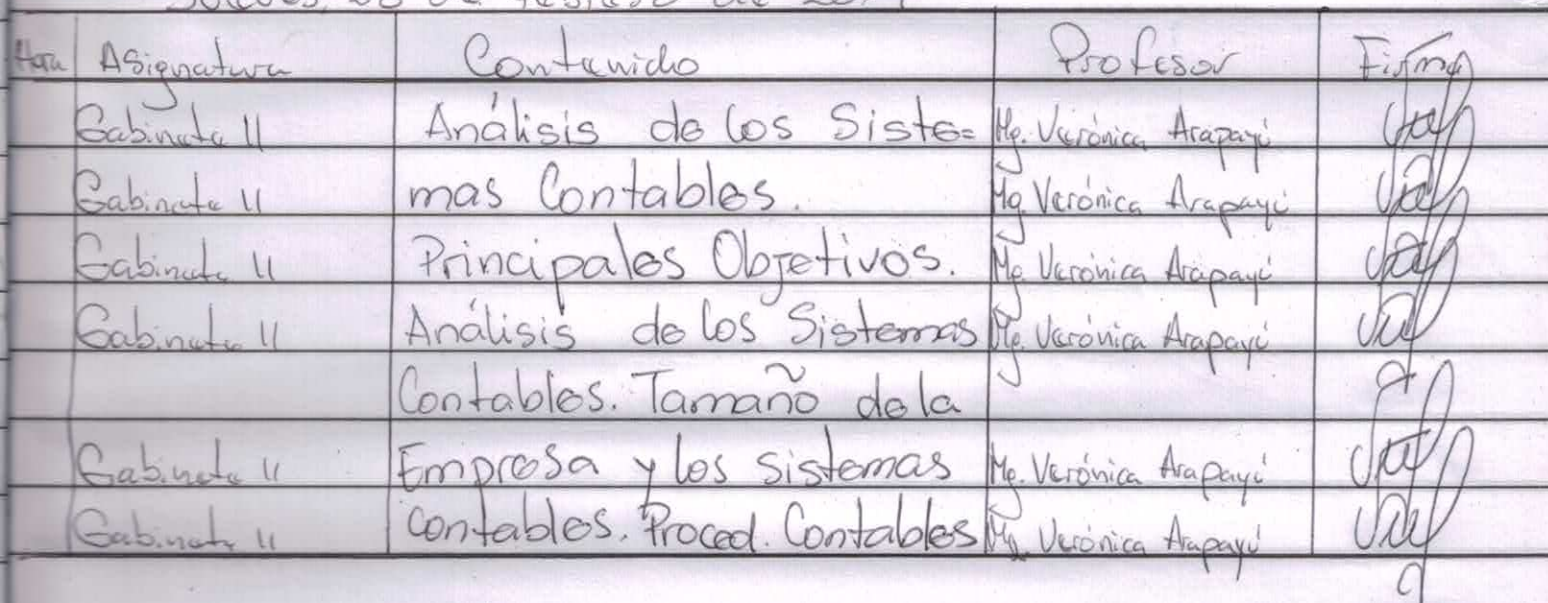 Hora Asignatura Contenido Profesor Firma
Gabinete II Análisis de los Siste= Mg. Verónica Arapayú
Gabinete II mas Contables. Mg. Verónica Arapayú
Gabinete II Principales Objetivos. Mg. Verónica Arapayú
Gabinete II Análisis de los Sistemas Mg. Verónica Arapayú
Contables. Tamaño de la
Gabinete II Empresa y los sistemas Mg. Verónica Arapayú
Gabinete II contables. Proced. Contables Mg. Verónica Arapayú